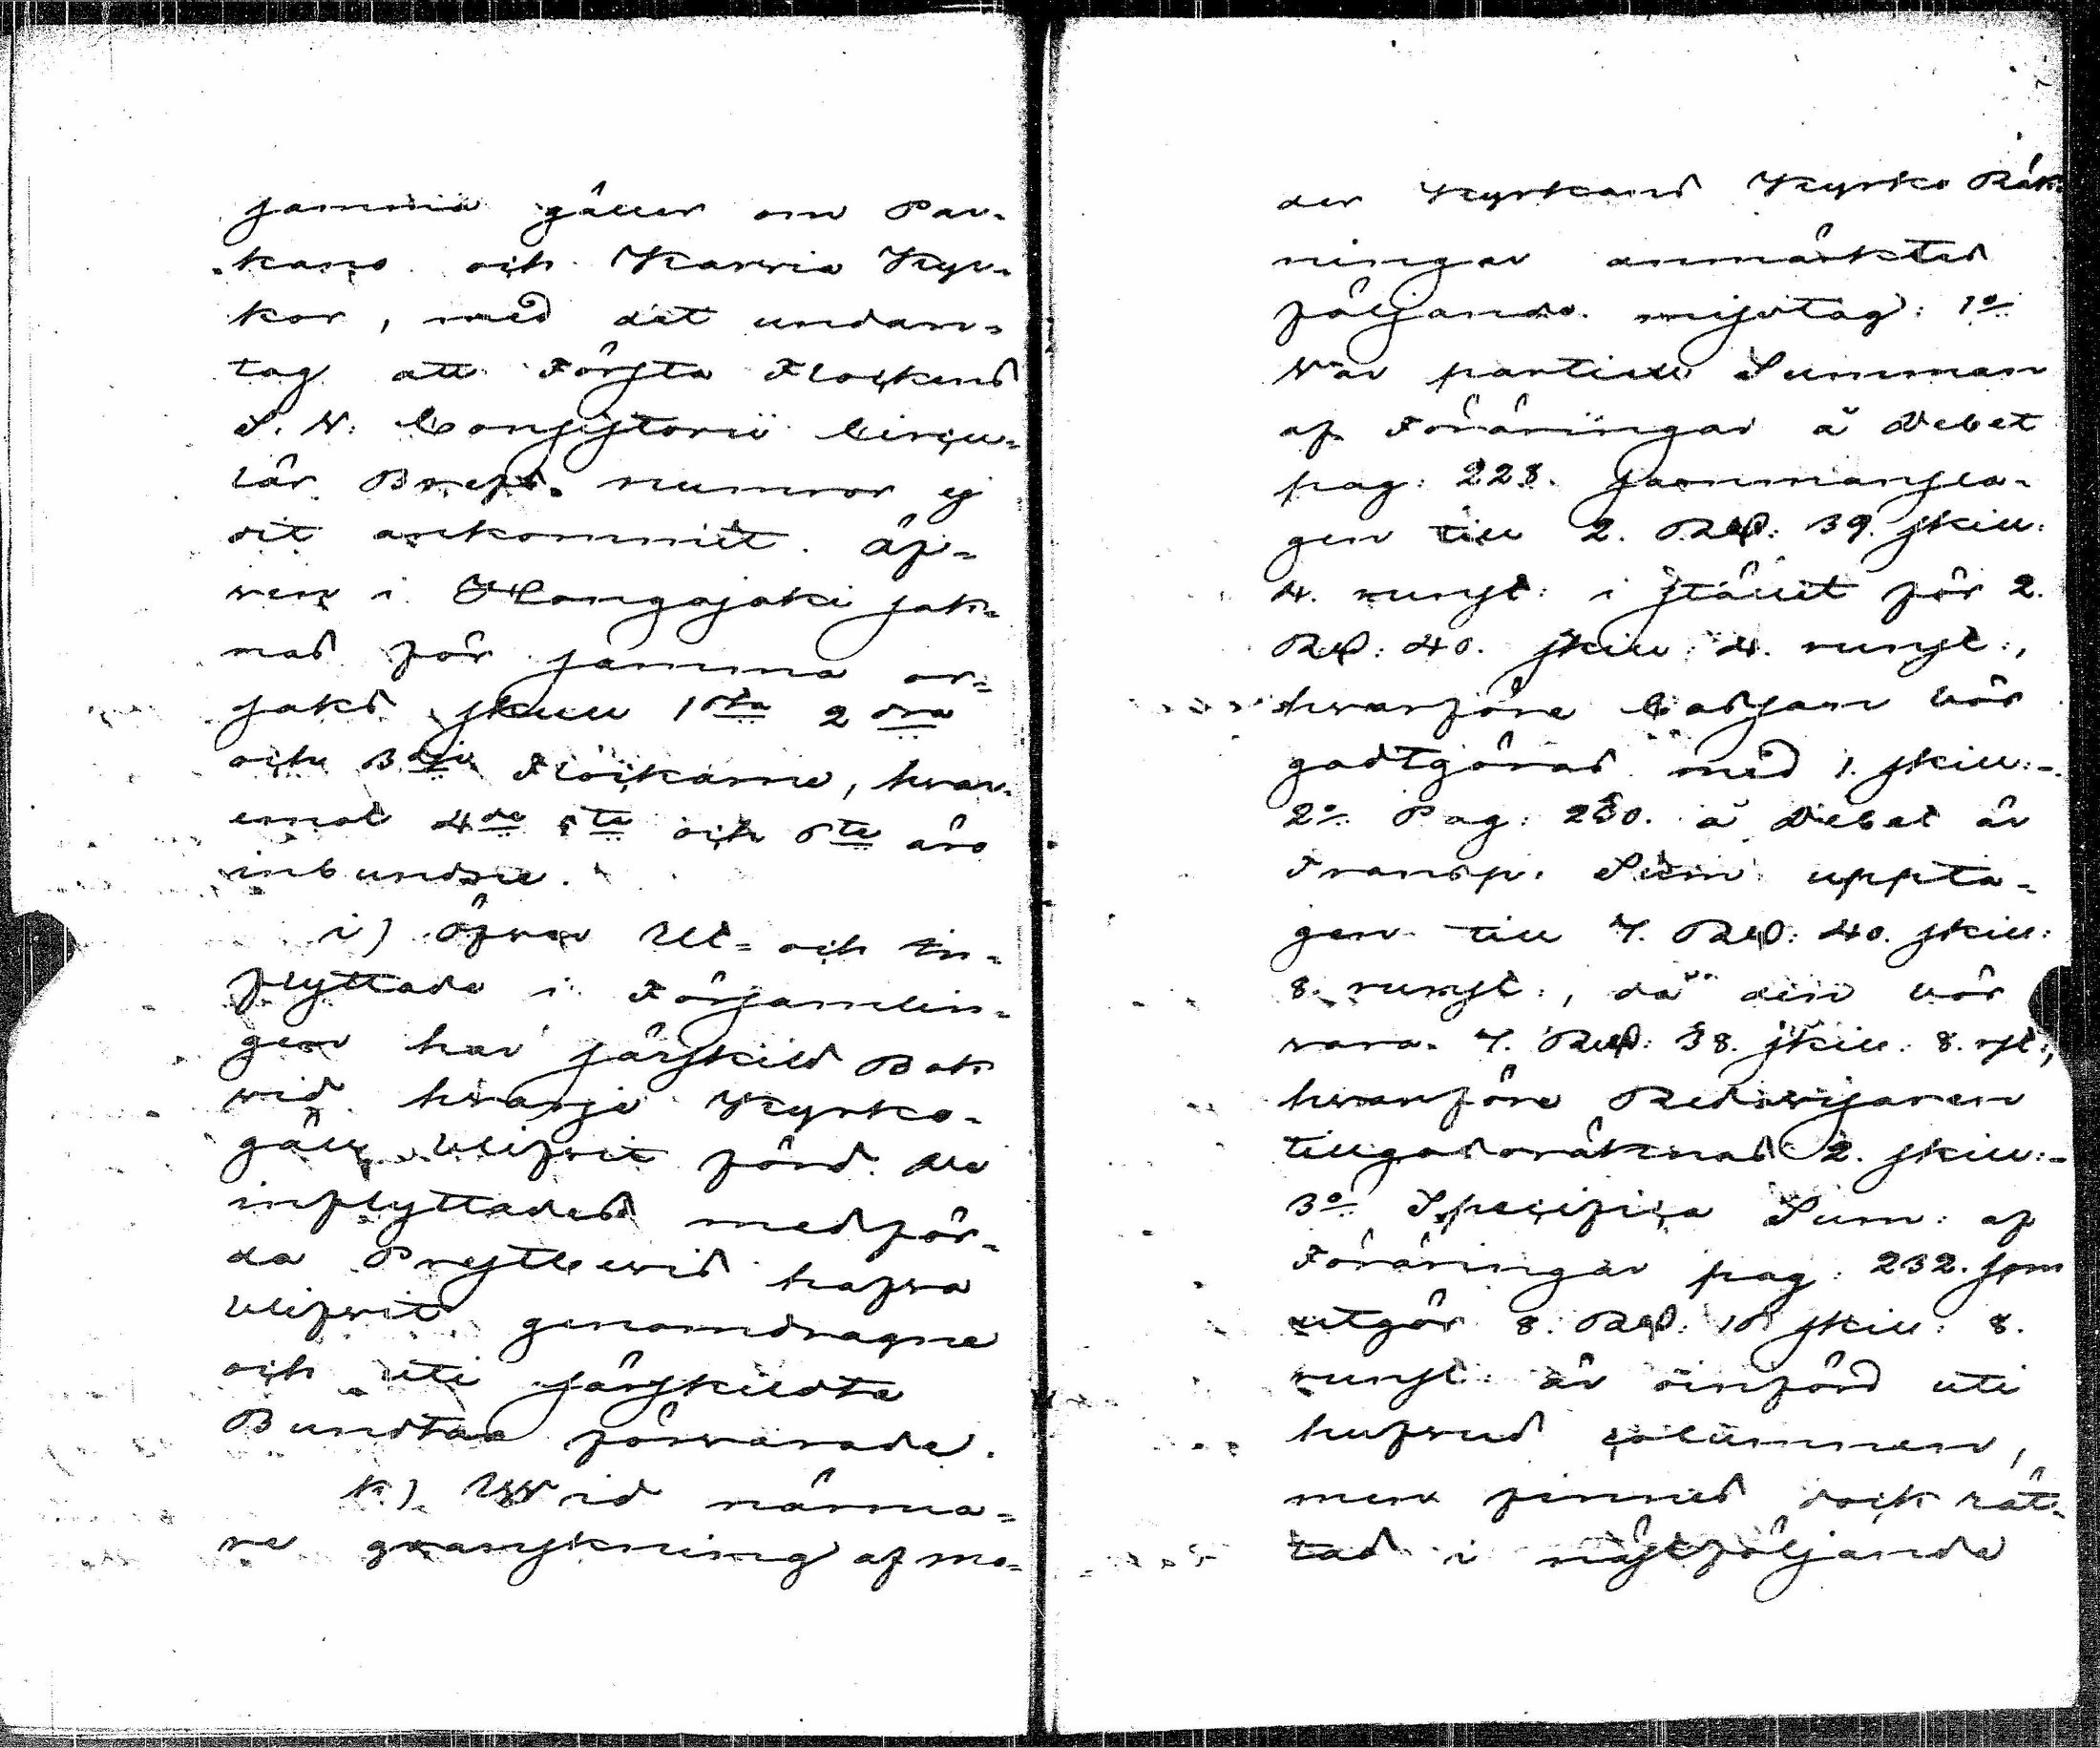 samma gäller om Par-
kano och Karvia Kyr-
kor, med det undan-
tag att Första Flockens
S. N. Consistorii Circu-
lär Brefs nummor ej
dit ankommit. Äf-
wen i Hongojoki sak-
nas för samma or-
saks skull 1sta 2dra
och 3dje Flockarne, hwar-
emot 4de 5te och 6te äro
inbundne.
i) Öfwer Ut- och In-
flyttade i Församlin-
gen har särskild Bok
wid hwarje Kyrko-
gäll blifwit förd. De
inflyttades medför-
da Prestbewis hafwa
blifwit genomdragne
och uti särskildta
Bundtar förwarade.
k) Wid närma-
re granskning af mo-
der Kyrkans Kyrko Räk-
ningar anmärktes
följande misstag: 1o
War partielle Summan
af Föräringar å Debet
pag: 228. sammansla-
gen till 2. Rd: 39. skill:
4. runst: i stället för 2.
Rd: 40. skill: 4. runst:,
hwarföre Cassan bör
godtgöras med 1. skill:-
2o Pag: 230. å Debet är
Transp. Sum: uppta-
gen till 7. Rd: 40. skill:
8. runst:, då den bör
wara 7. Rd: 38. skill: 8. rst:,
hwarföre Redowisaren
tillgodoräknas 2. skill:-
3o Specifica Sum: af
Föräringar pag: 232. som
utgör 8. Rd: 16 skill: 8.
runst: är oinförd uti
hufwud columnen,
men finnes dock rät-
tad i nästföljande